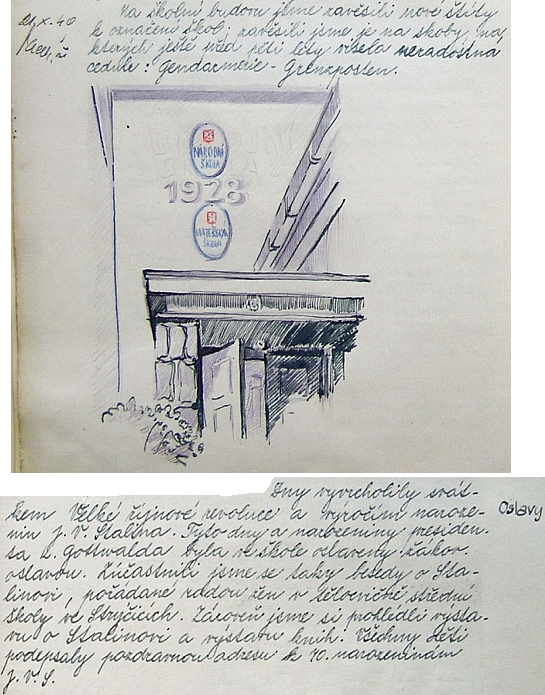 21. X. 40
Na školní budovu jsme zavěsili nové štíty
k označení škol; zavěsili jsme je na skoby, na
kterých ještě před pěti lety visela neradostná
cedule: Gendarmerie - Grenzposten.
NÁRODNÍ
ŠKOLA
1928
MATEŘSKÁ
ŠKOLA
Dny vyvrcholily svát-
kem Velké říjnové revoluce a výročím naroze-
nin J. V. Stalina. Tyto dny a narozeniny presiden-
ta Gottwalda byla ve škole oslaveny žákov.
oslavou. Zúčastnili jsme se taky besedy o Sta-
linovi, pořádané radou žen v tělocvičně střední
školy ve Strýčicích. Zároveň jsme si prohlédli výsta-
vu o Stalinovi a výstavu knih. Všechny děti
podepsaly pozdravnou adresu k 70. narozeninám
J. V. S.
Oslavy